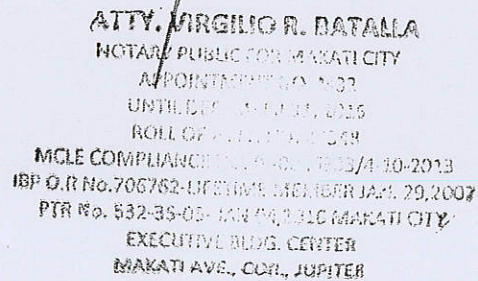 ATTY. VIRGILIO R. BATALLA
NOTARY PUBLIC FOR MAKATI CITY
APPOINTMENT NO. M-32
UNTIL
ROLL OF
MCLE COMPLIANCE /4-10-2013
IBP O.R No.706762-LIFETIME MEMBER JAN. 29,2007
PTR No. 532-35-05- JAN MAKATI CITY
EXECUTIVE BLDG. CENTER
MAKATI AVE., COR., JUPITER